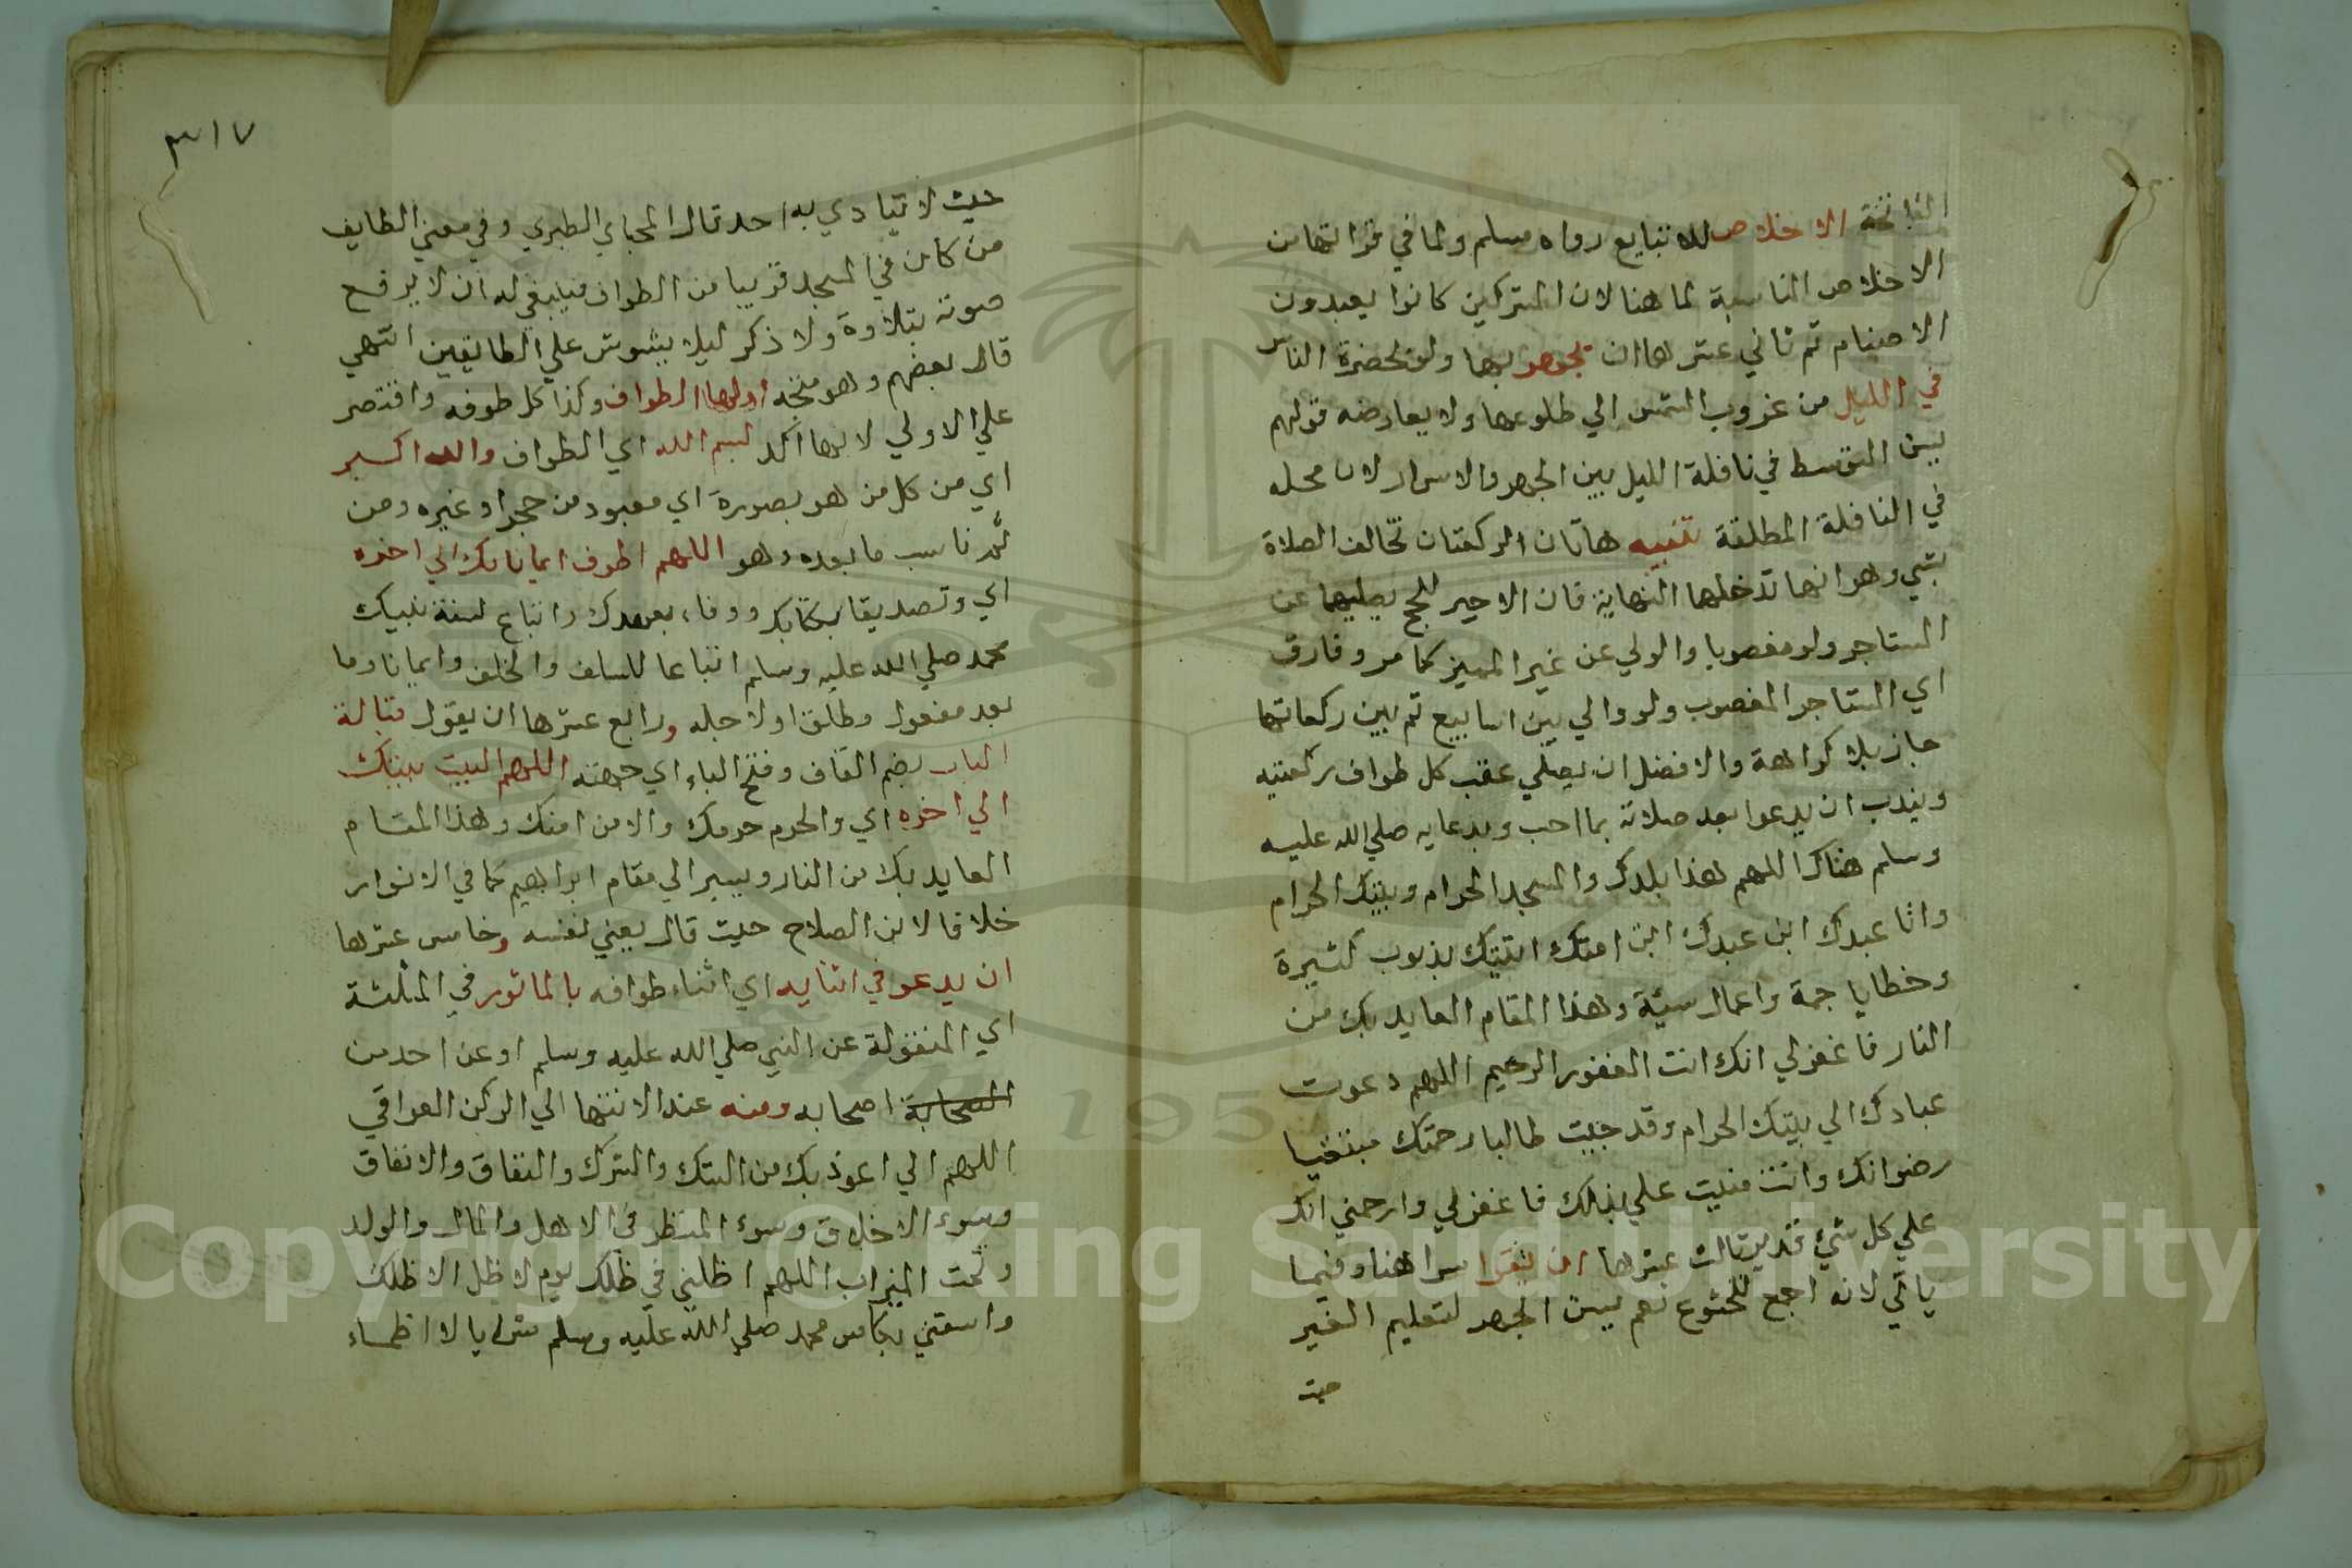 الفاتحة الاخلاص للاتباع رواه مسلم ولما في قراتهما من
الاخلاص المناسبة لما هنا لان المشركين كانوا يعبدون
الاصنام ثم ثاني عشرها ان يجهر بها ولو بحضرة الناس
في الليل من غروب الشمس الي طلوعها ولا يعارضه قولهم
يسن التوسط في نافلة الليل بين الجهر والاسرار لان محله
في النافلة المطلقة تنبيه هاتان الركعتان تخالف الصلاة
بشي وهو انها تدخلها النيابة فان الاجير للحج يصليهما عن
المستاجر ولو مغصوبا والولي عن غير المميز كما مر وفارق
اي المستاجر المغصوب ولو والي بين اسابيع ثم بين ركعاتها
جاز بلا كراهة والافضل ان يصلي عقب كل طواف ركعتيه
ويندب ان يدعوا بعد صلاته بما احب وبدعايه صلي الله عليه
وسلم هناك اللهم هذا بلدك والمسجد الحرام وبيتك الحرام
وانا عبدك ابن عبدك ابن امتك اتيتك بذنوب كثيرة
وخطايا جمة واعمال سيئة وهذا المقام العايد بك من
النار فاغفرلي انك انت الغفور الرحيم اللهم دعوت
عبادك الي بيتك الحرام وقد جيت طالبا رحمتك مبتغيا
رضوانك وانت مننت علي بذلك فاغفرلي وارحمني انك
علي كل شيء قدير ثالث عشرها ان يقرا سرا هنا وفيما
ياتي لانه اجمع للخشوع نعم يسن الجهر لتعليم الغير
حيث
٣١٧
حيث لا يتاذي به احد قال المحب الطبري وفي معني الطايف
من كان في المسجد قريبا من الطواف فينبغي له ان لا يرفع
صوته بتلاوة ولا ذكر ليلا يشوش علي الطايفين انتهي
قال بعضهم وهو متجه اولها الطواف وكذا كل طوفه واقتصر
علي الاولي لانها اكد بسم الله اي الطواف والله اكبر
اي من كل من هو بصورة اي معبود من حجر او غيره ومن
ثم ناسب ما بعده وهو اللهم اطوف ايمانا بك الي اخره
اي وتصديقا بكتابك ووفاء بعهدك واتباع لسنة نبيك
محمد صلي الله عليه وسلم اتباعا للسلف والخلف وايمانا وما
بعد مفعول مطلق او لاجله ورابع عشرها ان يقول قبالة
الباب بضم القاف وفتح الباء اي جهته اللهم البيت بيتك
الي اخره اي والحرم حرمك والامن امنك وهذا المقام
العايد بك من النار ويسير الي مقام ابراهيم كما في الانوار
خلافا لابن الصلاح حيث قال يعني نفسه وخامس عشرها
ان يدعو في اثنايه اي اثناء طوافه بالماثور في المثلثة
اي المنقولة عن النبي صلي الله عليه وسلم او عن احد من
الصحابة اصحابه ومنه عند الانتها الي الركن العراقي
اللهم اني اعوذ بك من الشك والشرك والنفاق والانفاق
وسوء الاخلاق وسوء المنظر في الاهل والمال والولد
وتحت الميزاب اللهم اظلني في ظلك يوم لا ظل الا ظلك
واسقني بكاس محمد صلي الله عليه وسلم شرابا لا اظماء
Copyright © King Saud University
1957